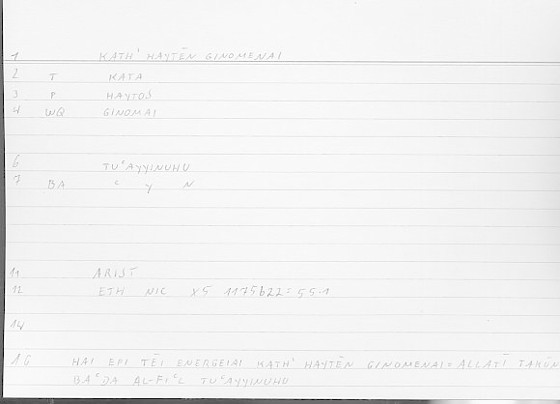 1 KATH' HAYTĒN GINOMENAI
2 T KATA
3 P HAYTOS
4 WQ GINOMAI
6 TUᶜAYYINUHU
7 BA ᶜ Y N
11 ARIST
12 ETH NIC X5 1175b22 = 55.1
14
16 HAI EPI TĒI ENERGEIAI KATH' HAYTĒN GINOMENAI = ALLATĪ TAKŪN
BAᶜDA AL-FIᶜL TUᶜAYYINUHU